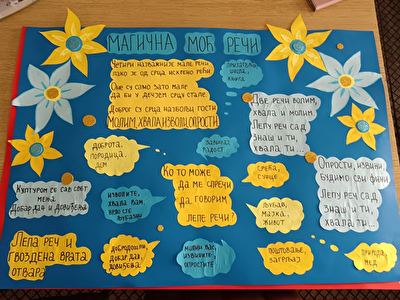 МАГИЧНА МОЋ РЕЧИ
ЧЕТИРИ НАЗВАЖНИЈЕ МАЛЕ РЕЧИ
ЛАКО ЈЕ ОД СРЦА ИСКРЕНО РЕЋИ.
ОНЕ СУ САМО ЗАТО МАЛЕ
ДА БИ У ДЕЧЈЕМ СРЦУ СТАЛЕ.
ДОБРОГ СУ СРЦА НАЈБОЉИ ГОСТИ
МОЛИМ, ХВАЛА, ИЗВОЛИ, ОПРОСТИ.
ПРИЈАТЕЉ
ШКОЛА,
КЊИГА
ДВЕ РЕЧИ ВОЛИМ,
ХВАЛА И МОЛИМ
ЛЕПУ РЕЧ САД
ЗНАШ И ТИ,
ХВАЛА ТИ...
ДОБРОТА,
ПОРОДИЦА,
ДОМ
ЗАВИЧАЈ
РАДОСТ
КУЛТУРОМ СЕ САВ СВЕТ
МЕЊА
ДОБАР ДАН И ДОВИЂЕЊА
ИЗВОЛИТЕ,
ХВАЛА ВАМ,
ВРЛО СТЕ
ЉУБАЗНИ
КО ТО МОЖЕ
ДА МЕ СПРЕЧИ
ДА ГОВОРИМ
ЛЕПЕ РЕЧИ?
СРЕЋА,
СУНЦЕ
ЉУБАВ,
МАЈКА,
ЖИВОТ
ОПРОСТИ, ИЗВИНИ
БУДИМО СВИ ФИНИ
ЛЕПУ РЕЧ САД
ЗНАШ И ТИ,
ХВАЛА ТИ...
ЛЕПА РЕЧ И
ГВОЗДЕНА ВРАТА
ОТВАРА
ДОБРОДОШЛИ,
ДОБАР ДАН,
ДОВИЂЕЊА
МОЛИМ ВАС,
ИЗВИНИТЕ,
ОПРОСТИТЕ
ПОШТОВАЊЕ,
ЗАГРЉАЈ
ПРИРОДА,
МЕД